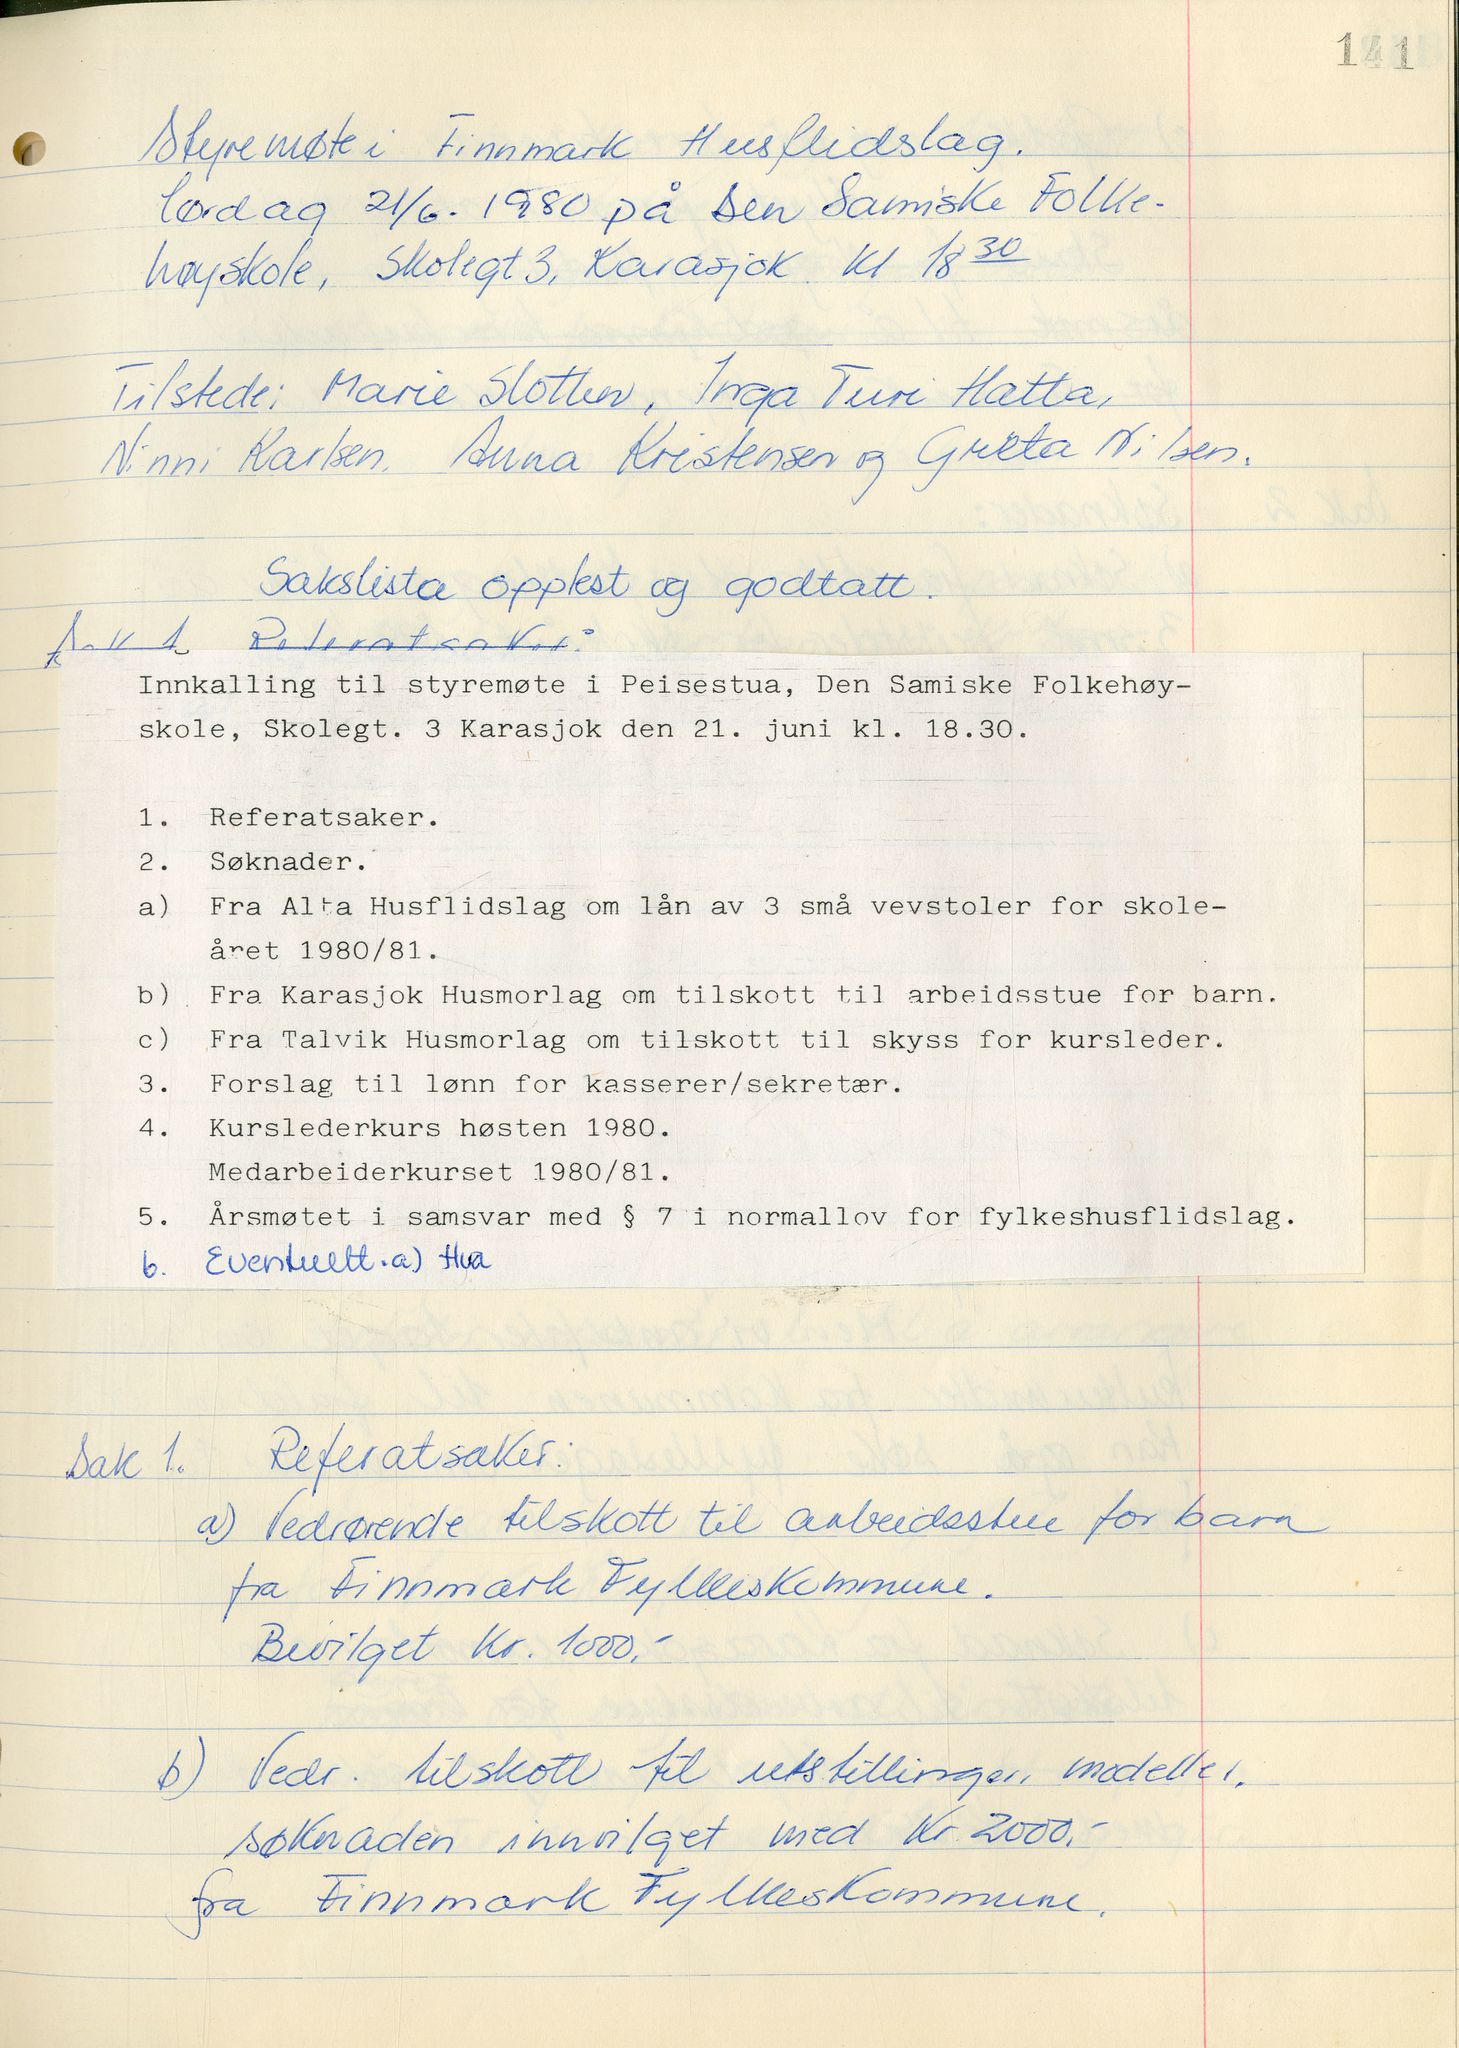 141
Styremøte i Finnmark Husflidslag.
lørdag 21/6. 1980 på Den Samiske Folke-
høyskole, Skolegt 3, Karasjok. Kl 18 30
Tilstede: Marie Slotten, Inga Turi Hatta,
Ninni Karlsen, Anna Kristensen og Greta Nilsen.
Sakslista opplest og godtatt.
Sak 1. Referatsaker:
Innkalling til styremøte i Peisestua, Den Samiske Folkehøy-
skole, Skolegt. 3 Karasjok den 21. juni kl. 18.30.
1. Referatsaker.
2. Søknader.
a) Fra Alta Husflidslag om lån av 3 små vevstoler for skole-
året 1980/81.
b) Fra Karasjok Husmorlag om tilskott til arbeidsstue for barn.
c) Fra Talvik Husmorlag om tilskott til skyss for kursleder.
3. Forslag til lønn for kasserer/sekretær.
4. Kurslederkurs høsten 1980.
Medarbeiderkurset 1980/81.
5. Årsmøtet i samsvar med § 7 i normallov for fylkeshusflidslag.
6. Eventuelt. a) Hva
Sak 1. Referatsaker:
a) Vedrørende tilskott til arbeidsstue for barn
fra Finnmark Fylkeskommune.
Bevilget Kr. 1000,-
b) Vedr. tilskott til utstillinger, modeller,
søknaden innvilget med Kr. 2000,-
fra Finnmark Fylkeskommune.